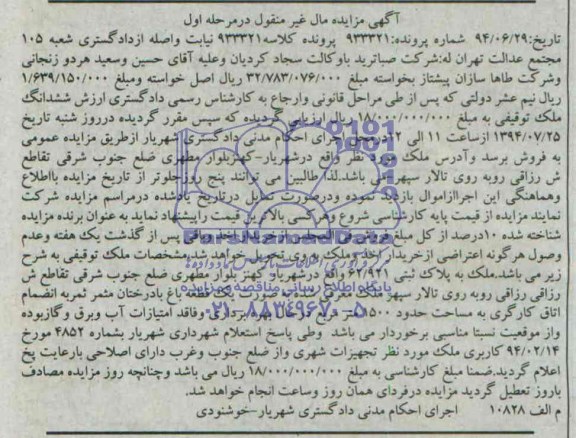 آگهی مزایده مال غیر منقول درمرحله اول
تاریخ:۹۴/۰۶/۲۹ شماره پرونده:۹۳۳۳۲۱ پرونده کلاسه۹۳۳۳۲۱ نیابت واصله ازدادگستری شعبه ۱۰۵
مجتمع عدالت تهران له:شرکت صباترید باوکالت سجاد کردیان وعلیه آقای حسین وسعید هردو زنجانی
وشرکت طاها سازان پیشتاز بخواسته مبلغ ۳۲/۷۸۳/۰۷۶/۰۰۰ ریال اصل خواسته ومبلغ ۱/۶۳۹/۱۵۰/۰۰۰
ریال نیم عشر دولتی که پس از طی مراحل قانونی وارجاع به کارشناس رسمی دادگستری ارزش ششدانگ
ملک توقیفی به مبلغ ۱۸/۰۰۰/۰۰۰/۰۰۰ ریال ارزیابی گردیده که سپس مقرر گردیده درروز شنبه تاریخ
۱۳۹۴/۰۷/۲۵ ازساعت ۱۱ الی ۱۲ اجرای احکام مدنی دادگستری شهریار ازطریق مزایده عمومی
به فروش برسد وآدرس ملک مورد نظر واقع درشهریار-کهنزبلوار مطهری ضلع جنوب شرقی تقاطع
ش رزاقی روبه روی تالار سپهر می باشد.لذا طالبین می توانند پنج روز جلوتر از تاریخ مزایده بااطلاع
وهماهنگی این اجراازاموال بازدید نموده ودرصورت تمایل درتاریخ یادشده درمراسم مزایده شرکت
نمایند مزایده از قیمت پایه کارشناسی شروع وهرکسی بالاترین قیمت راپیشنهاد نماید به عنوان برنده مزایده
شناخته شده ۱۰درصد از کل مبلغ فروش فی المجلس ازخریدار اخذ پس از گذشت یک هفته وعدم
وصول هرگونه اعتراضی ازخریدار اخذ وملک به وی تحویل خواهد شد.مشخصات ملک توقیفی به شرح
زیر می باشد.ملک به پلاک ثبتی ۶۲/۹۲۱ واقع درشهریار کهنز بلوار مطهری ضلع جنوب شرقی تقاطع ش
رزاقی روبه روی تالار سپهر ملک معرفی شده به صورت یک قطعه باغ بادرختان مثمر ثمربه انضمام
اتاق کارگری به مساحت حدود ۱۵۰۰ متر وفاقد امتیازات آب وبرق وگازبوده
واز موقعیت نسبتا مناسبی برخوردار می باشد وطی پاسخ استعلام شهرداری شهریار بشماره ۴۸۵۲ مورخ
۹۴/۰۲/۱۴ کاربری ملک مورد نظر تجهیزات شهری واز ضلع جنوب وغرب دارای اصلاحی بارعایت پخ
اعلام گردید.ضمنا مبلغ کارشناسی به مبلغ ۱۸/۰۰۰/۰۰۰/۰۰۰ ریال می باشد وچنانچه روز مزایده مصادف
باروز تعطیل گردید مزایده درفردای همان روز وساعت انجام خواهد شد.
م الف ۱۰۸۲۸ اجرای احکام مدنی دادگستری شهریار-خوشنودی
ParsNamadData
پایگاه اطلاع رسانی مناقصه و مزایده
۰۲۱-۸۸۳۴۹۶۷۰-۵